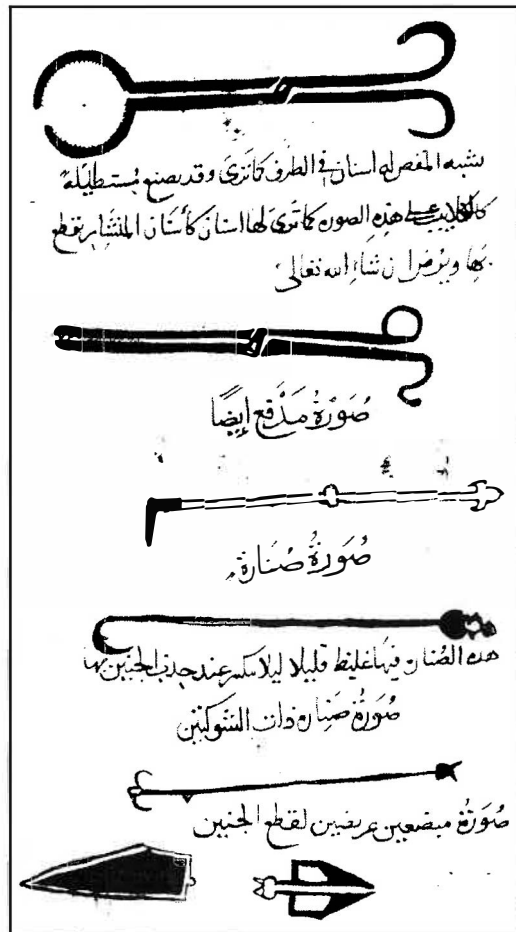 يشبه المقص له اسنان في الطرف كما ترى وقد يصنع مستطيلة
كالكلاليب على هذه الصورة كما ترى لها اسنان كأسنان المنشار يقطع
بها ويرض ان شاء الله تعالى
صُوَرَةُ مَدْفَع ايضًا
صُوَرَةُ صُنَارَة
هذه الصنارة فيها غليظ قليلا ليلا تنكسر عند جذب الجنين بها
صُوَرَةُ صنارة ذات الشوكتين
صُوَرَةُ مبضعين عريضين لقطع الجنين